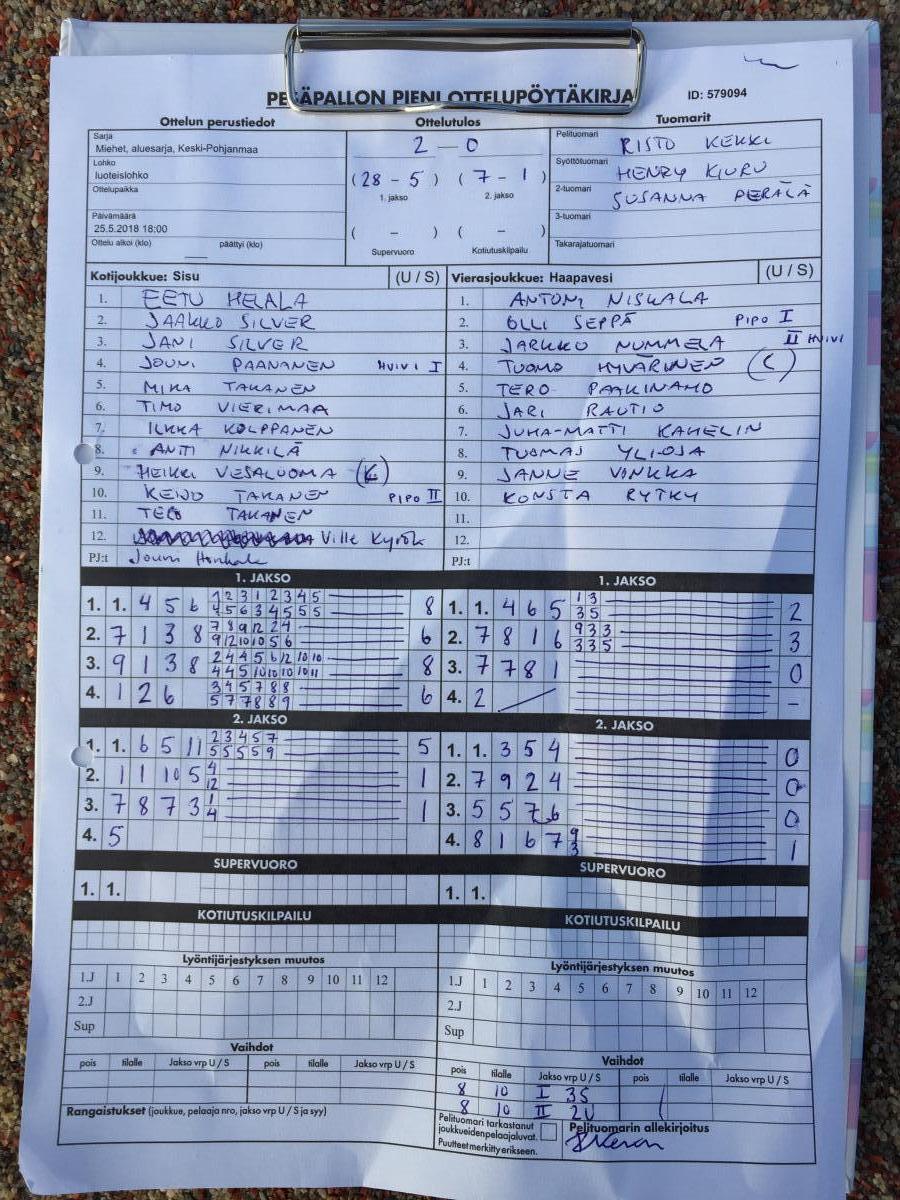 PESÄPALLON PIENI OTTELUPÖYTÄKIRJA
ID: 579094
Ottelun perustiedot
Sarja
Miehet, aluesarja, Keski-Pohjanmaa
Lohko
luoteislohko
Ottelupaikka
Päivämäärä
25.5.2018 18:00
Ottelu alkoi (klo) päättyi (klo)
Ottelutulos
2 – 0
(28 – 5) (7 – 1)
1. jakso 2. jakso
( – ) ( – )
Supervuoro Kotiutuskilpailu
Tuomarit
Pelituomari RISTO KEKKI
Syöttötuomari HENRY KIURU
2-tuomari SUSANNA PERÄLÄ
3-tuomari
Takarajatuomari
Kotijoukkue: Sisu (U / S)
1. EETU HELALA
2. JAAKKO SILVER
3. JANI SILVER
4. JOUNI PAANANEN HUIVI I
5. MIKA TAKANEN
6. TIMO VIERIMAA
7. ILKKA KOLPPANEN
8. ANTTI NIKKILÄ
9. HEIKKI VESALUOMA (K)
10. KEIJO TAKANEN PIPO II
11. TERO TAKANEN
12. Ville Kyrölä
PJ:t Jouni
Vierasjoukkue: Haapavesi (U / S)
1. ANTONI NISKALA
2. OLLI SEPPÄ PIPO I
3. JARKKO NUMMELA II HUIVI
4. TUOMO HYVÄRINEN (C)
5. TERO PAAKINAHO
6. JARI RAUTIO
7. JUHA-MATTI KAHELIN
8. TUOMAS YLIOJA
9. JANNE VINKKA
10. KONSTA RYTKY
11.
12.
PJ:t
1. JAKSO
1. 1. 4 5 6 8
2. 7 1 3 8 6
3. 9 1 3 8 8
4. 1 2 6 6
1. JAKSO
1. 1. 4 6 5 1 3 2
3 5
2. 7 8 1 6 9 3 3 3
3 3 5
3. 7 7 8 1 0
4. 2 –
2. JAKSO
1. 1. 6 5 11 2 3 4 5 7 5
5 5 5 5 9
2. 1 1 10 5 4 1
12
3. 7 8 7 3 1 1
4
4. 5
2. JAKSO
1. 1. 3 5 4 0
2. 7 9 2 4 0
3. 5 5 7 6 0
4. 8 1 6 7 9 1
3
SUPERVUORO
1. 1.
SUPERVUORO
1. 1.
KOTIUTUSKILPAILU
KOTIUTUSKILPAILU
Lyöntijärjestyksen muutos
1.J 1 2 3 4 5 6 7 8 9 10 11 12
2.J
Sup
Lyöntijärjestyksen muutos
1.J 1 2 3 4 5 6 7 8 9 10 11 12
2.J
Sup
Vaihdot
pois tilalle Jakso vrp U / S pois tilalle Jakso vrp U / S
Vaihdot
pois tilalle Jakso vrp U / S pois tilalle Jakso vrp U / S
8 10 I 3S
8 10 II 2U
Rangaistukset (joukkue, pelaaja nro, jakso vrp U / S ja syy)
Pelituomari tarkastanut
joukkueiden pelaajaluvat.
Puutteet merkitty erikseen.
Pelituomarin allekirjoitus